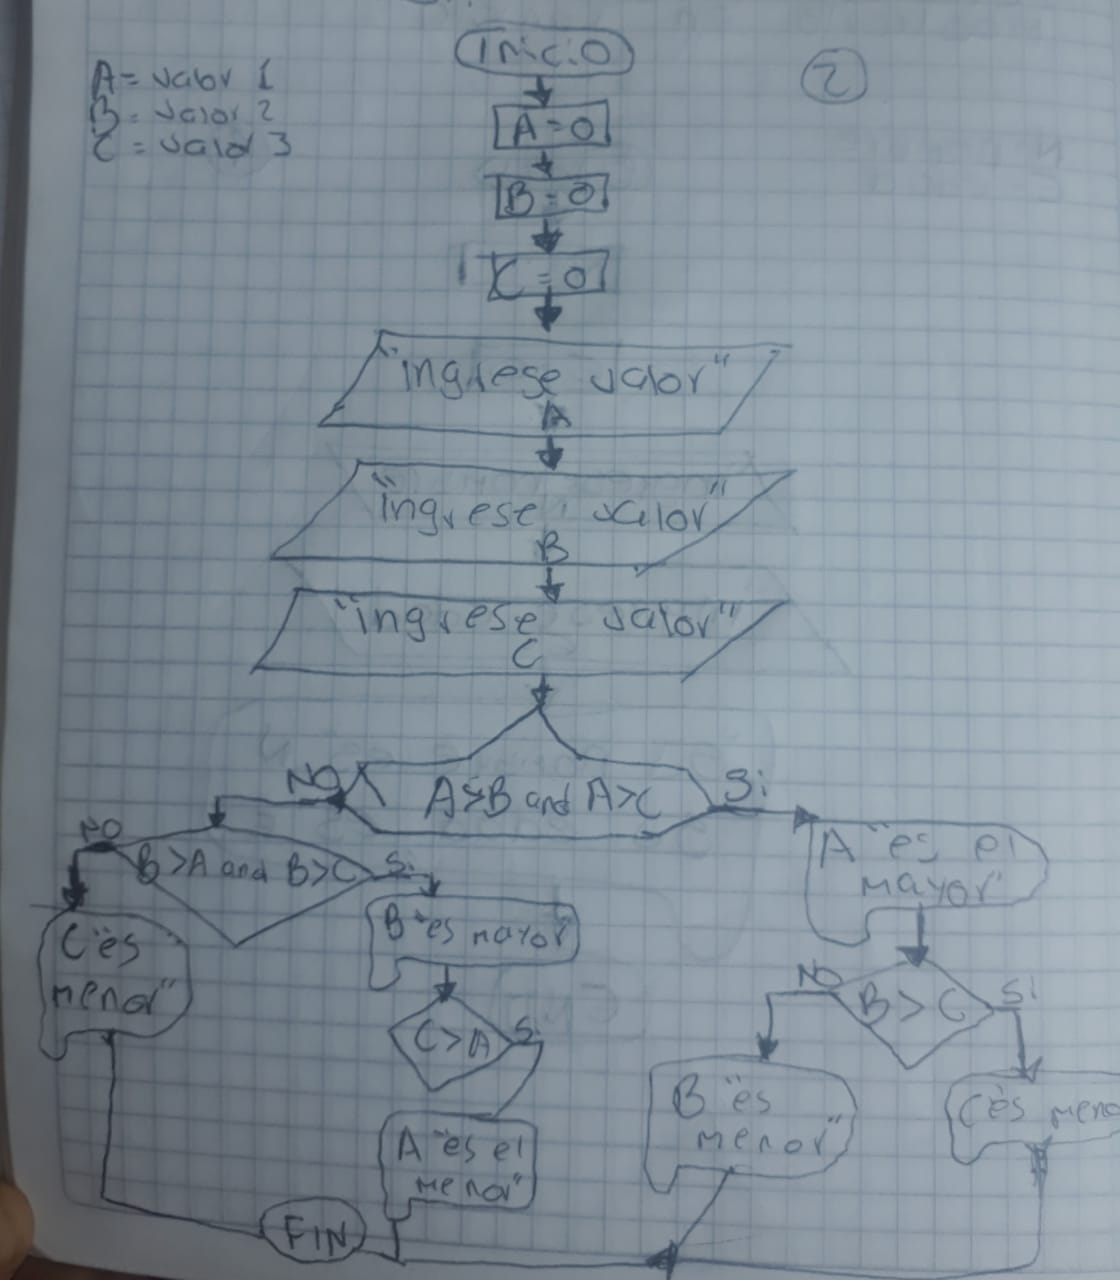 Inicio
2
A = valor 1
B = valor 2
C = valor 3
A = 0
B = 0
C = 0
"ingrese valor"
A
"ingrese valor"
B
"ingrese valor"
C
A>B and A>C
NO
Si
B >A and B>C
NO
Si
A "es el
mayor"
C "es
menor"
B "es mayor"
C>A
Si
B > C
NO
Si
A "es el
menor"
B "es
menor"
C es meno
FIN